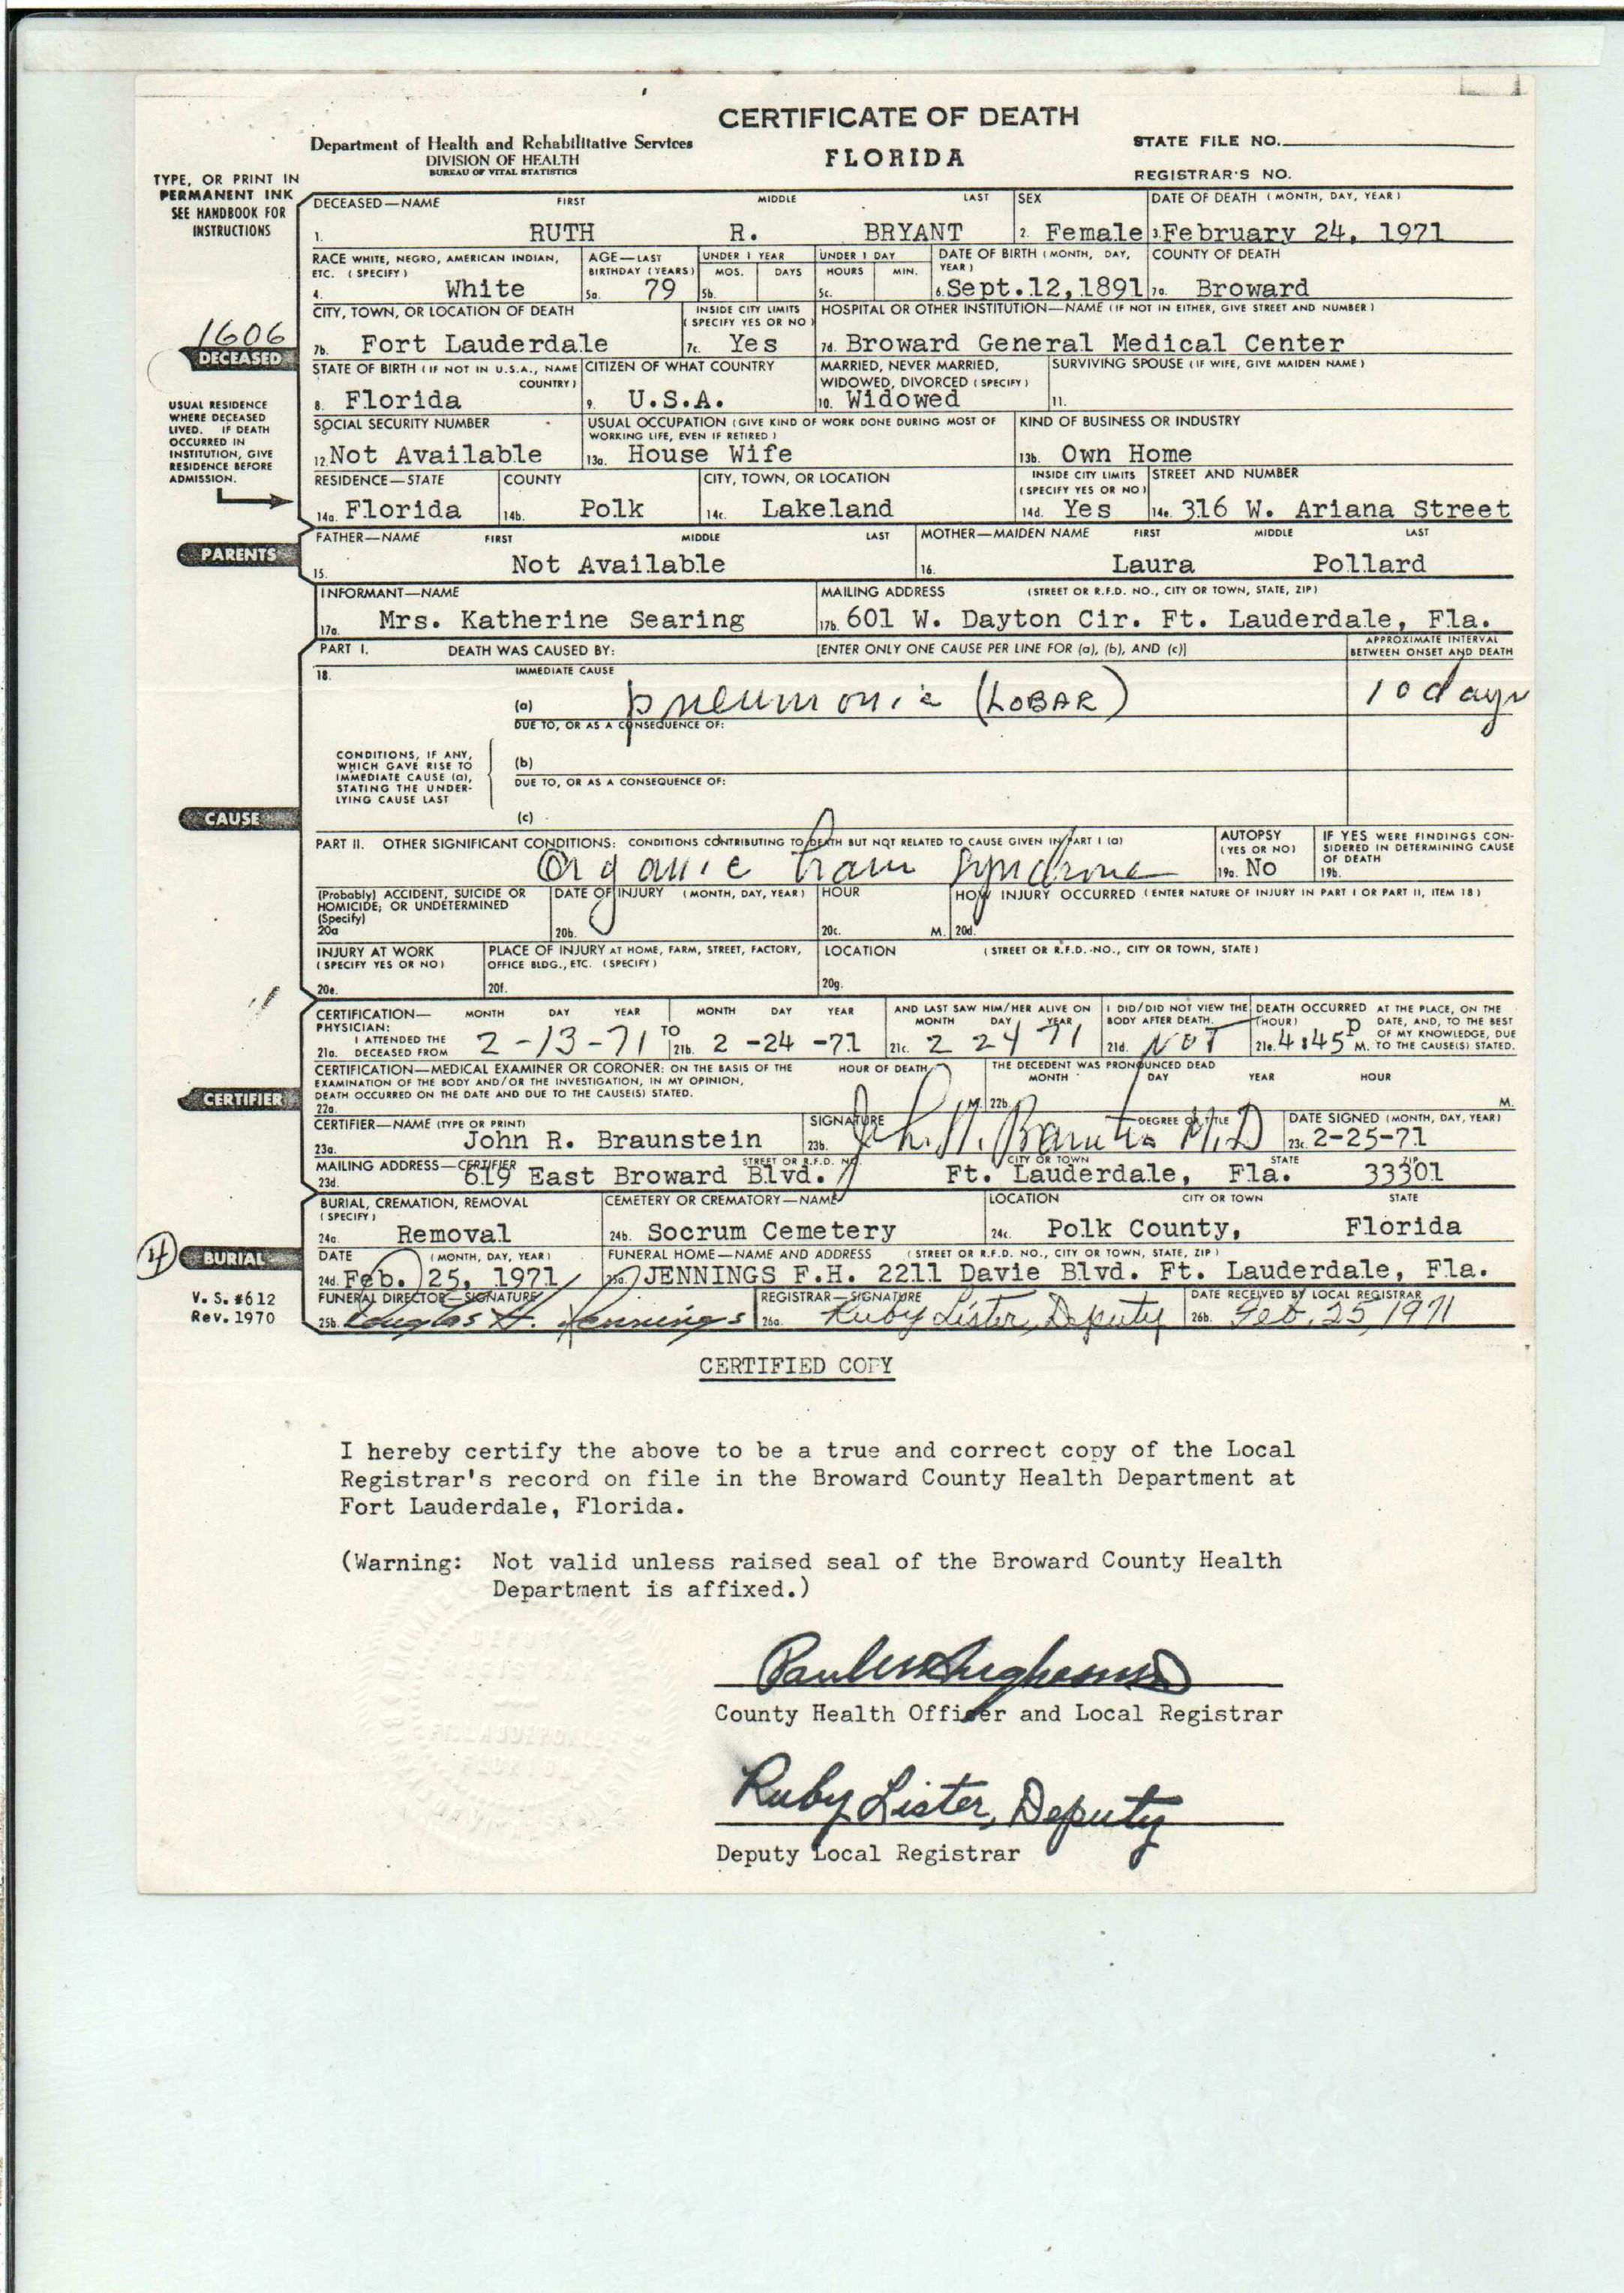 CERTIFICATE OF DEATH
FLORIDA
Department of Health and Rehabilitative Services
DIVISION OF HEALTH
BUREAU OF VITAL STATISTICS
STATE FILE NO.
REGISTRAR'S NO.
TYPE, OR PRINT IN
PERMANENT INK
SEE HANDBOOK FOR
INSTRUCTIONS
DECEASED—NAME FIRST MIDDLE LAST SEX DATE OF DEATH (MONTH, DAY, YEAR)
1. RUTH R. BRYANT 2. Female 3. February 24, 1971
RACE WHITE, NEGRO, AMERICAN INDIAN, ETC. (SPECIFY) AGE—LAST BIRTHDAY (YEARS) UNDER 1 YEAR MOS. DAYS UNDER 1 DAY HOURS MIN. DATE OF BIRTH (MONTH, DAY, YEAR) COUNTY OF DEATH
4. White 5a. 79 5b. 5c. 6. Sept.12,1891 7a. Broward
CITY, TOWN, OR LOCATION OF DEATH INSIDE CITY LIMITS (SPECIFY YES OR NO) HOSPITAL OR OTHER INSTITUTION—NAME (IF NOT IN EITHER, GIVE STREET AND NUMBER)
1606
DECEASED
7b. Fort Lauderdale 7c. Yes 7d. Broward General Medical Center
STATE OF BIRTH (IF NOT IN U.S.A., NAME COUNTRY) CITIZEN OF WHAT COUNTRY MARRIED, NEVER MARRIED, WIDOWED, DIVORCED (SPECIFY) SURVIVING SPOUSE (IF WIFE, GIVE MAIDEN NAME)
8. Florida 9. U.S.A. 10. Widowed 11.
USUAL RESIDENCE
WHERE DECEASED
LIVED. IF DEATH
OCCURRED IN
INSTITUTION, GIVE
RESIDENCE BEFORE
ADMISSION.
SOCIAL SECURITY NUMBER USUAL OCCUPATION (GIVE KIND OF WORK DONE DURING MOST OF WORKING LIFE, EVEN IF RETIRED) KIND OF BUSINESS OR INDUSTRY
12. Not Available 13a. House Wife 13b. Own Home
RESIDENCE—STATE COUNTY CITY, TOWN, OR LOCATION INSIDE CITY LIMITS (SPECIFY YES OR NO) STREET AND NUMBER
14a. Florida 14b. Polk 14c. Lakeland 14d. Yes 14e. 316 W. Ariana Street
PARENTS
FATHER—NAME FIRST MIDDLE LAST MOTHER—MAIDEN NAME FIRST MIDDLE LAST
15. Not Available 16. Laura Pollard
INFORMANT—NAME MAILING ADDRESS (STREET OR R.F.D. NO., CITY OR TOWN, STATE, ZIP)
17a. Mrs. Katherine Searing 17b. 601 W. Dayton Cir. Ft. Lauderdale, Fla.
PART I. DEATH WAS CAUSED BY: [ENTER ONLY ONE CAUSE PER LINE FOR (a), (b), AND (c)] APPROXIMATE INTERVAL BETWEEN ONSET AND DEATH
18. IMMEDIATE CAUSE
(a) pneumonia (LOBAR) 10 days
DUE TO, OR AS A CONSEQUENCE OF:
CONDITIONS, IF ANY,
WHICH GAVE RISE TO
IMMEDIATE CAUSE (a),
STATING THE UNDER-
LYING CAUSE LAST
(b)
DUE TO, OR AS A CONSEQUENCE OF:
(c)
CAUSE
PART II. OTHER SIGNIFICANT CONDITIONS: CONDITIONS CONTRIBUTING TO DEATH BUT NOT RELATED TO CAUSE GIVEN IN PART I (a) AUTOPSY (YES OR NO) IF YES WERE FINDINGS CONSIDERED IN DETERMINING CAUSE OF DEATH
Organic brain syndrome 19a. NO 19b.
(Probably) ACCIDENT, SUICIDE OR HOMICIDE; OR UNDETERMINED (Specify) DATE OF INJURY (MONTH, DAY, YEAR) HOUR HOW INJURY OCCURRED (ENTER NATURE OF INJURY IN PART I OR PART II, ITEM 18)
20a 20b. 20c. M. 20d.
INJURY AT WORK (SPECIFY YES OR NO) PLACE OF INJURY AT HOME, FARM, STREET, FACTORY, OFFICE BLDG., ETC. (SPECIFY) LOCATION (STREET OR R.F.D. NO., CITY OR TOWN, STATE)
20e. 20f. 20g.
CERTIFICATION—PHYSICIAN: MONTH DAY YEAR MONTH DAY YEAR AND LAST SAW HIM/HER ALIVE ON MONTH DAY YEAR I DID/DID NOT VIEW THE BODY AFTER DEATH. DEATH OCCURRED (HOUR) AT THE PLACE, ON THE DATE, AND, TO THE BEST OF MY KNOWLEDGE, DUE TO THE CAUSE(S) STATED.
21a. I ATTENDED THE DECEASED FROM 2-13-71 TO 21b. 2-24-71 21c. 2 24 71 21d. NOT 21e. 4:45 P M.
CERTIFICATION—MEDICAL EXAMINER OR CORONER: ON THE BASIS OF THE EXAMINATION OF THE BODY AND/OR THE INVESTIGATION, IN MY OPINION, DEATH OCCURRED ON THE DATE AND DUE TO THE CAUSE(S) STATED. HOUR OF DEATH THE DECEDENT WAS PRONOUNCED DEAD MONTH DAY YEAR HOUR
22a. M. 22b. M.
CERTIFIER
CERTIFIER—NAME (TYPE OR PRINT) SIGNATURE DEGREE OR TITLE DATE SIGNED (MONTH, DAY, YEAR)
23a. John R. Braunstein 23b. M.D 23c. 2-25-71
MAILING ADDRESS—CERTIFIER STREET OR R.F.D. NO. CITY OR TOWN STATE ZIP
23d. 619 East Broward Blvd. Ft. Lauderdale, Fla. 33301
BURIAL, CREMATION, REMOVAL (SPECIFY) CEMETERY OR CREMATORY—NAME LOCATION CITY OR TOWN STATE
24a. Removal 24b. Socrum Cemetery 24c. Polk County, Florida
4
BURIAL
DATE (MONTH, DAY, YEAR) FUNERAL HOME—NAME AND ADDRESS (STREET OR R.F.D. NO., CITY OR TOWN, STATE, ZIP)
24d. Feb. 25, 1971 25a. JENNINGS F.H. 2211 Davie Blvd. Ft. Lauderdale, Fla.
V. S. #612
Rev. 1970
FUNERAL DIRECTOR—SIGNATURE REGISTRAR—SIGNATURE DATE RECEIVED BY LOCAL REGISTRAR
25b. Douglas H. Jennings 26a. Ruby Lister, Deputy 26b. Feb. 25, 1971
CERTIFIED COPY
I hereby certify the above to be a true and correct copy of the Local
Registrar's record on file in the Broward County Health Department at
Fort Lauderdale, Florida.
(Warning: Not valid unless raised seal of the Broward County Health
Department is affixed.)
County Health Officer and Local Registrar
Ruby Lister, Deputy
Deputy Local Registrar